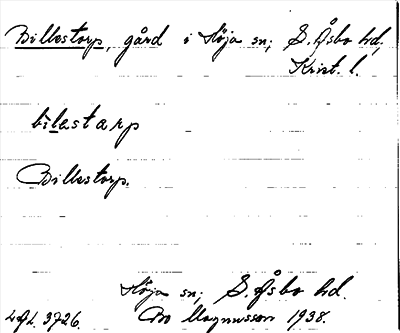 Billestorp, gård i Höja sn; S. Åsbo hd,
Krist. l.
bilestarp
Billestorp.
Höja sn; S. Åsbo hd.
LAL. 3726. Bo Magnusson 1938.